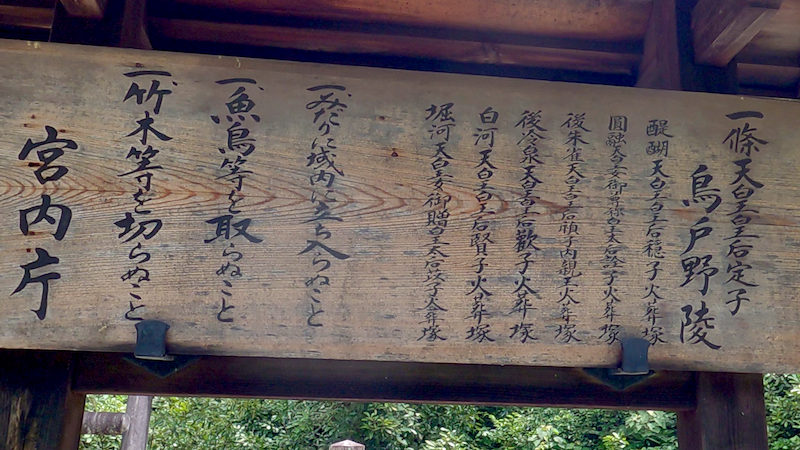 一條天皇皇后定子
鳥戸野陵
醍醐天皇皇后穏子火葬塚
圓融天皇女御尊称皇太后詮子火葬塚
後朱雀天皇皇后禎子内親王火葬塚
後冷泉天皇皇后歡子火葬塚
白河天皇皇后賢子火葬塚
堀河天皇女御贈皇太后苡子火葬塚
一みだりに域内に立ち入らぬこと
一魚鳥等を取らぬこと
一竹木等を切らぬこと
宮内庁